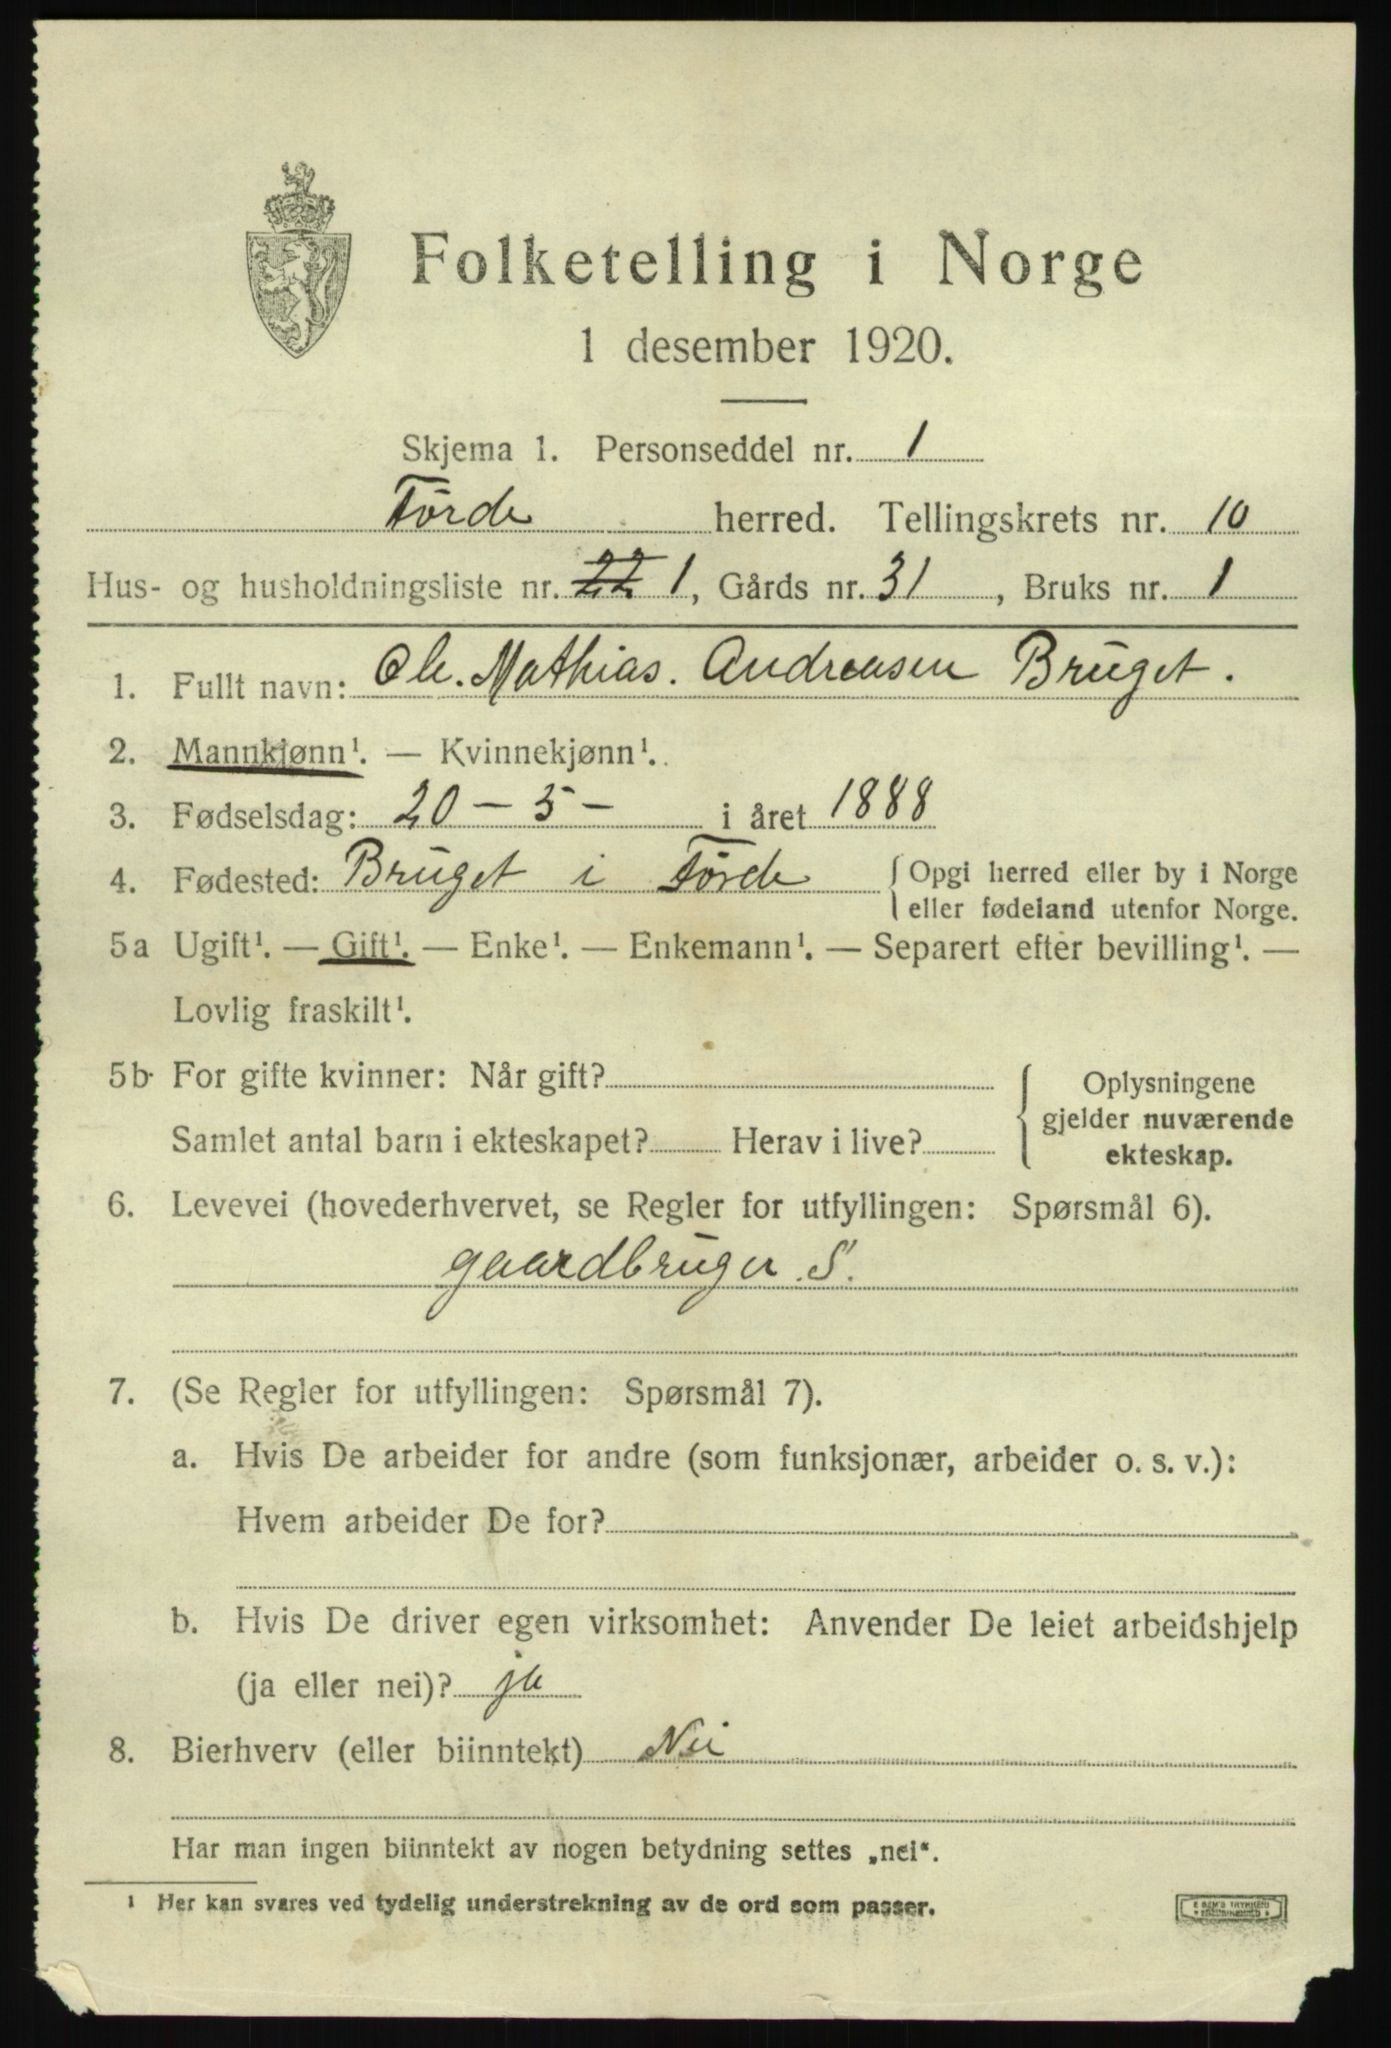 Folketelling i Norge
1 desember 1920.
Skjema 1. Personseddel nr. 1
Førde herred. Tellingskrets nr. 10
Hus- og husholdningsliste nr. 22 1, Gårds nr. 31, Bruks nr. 1
1. Fullt navn: Ole. Mathias. Andreasen Bruget.
2. Mannkjønn¹. — Kvinnekjønn¹.
3. Fødselsdag: 20 — 5 — i året 1888
4. Fødested: Bruget i Førde { Opgi herred eller by i Norge
eller fødeland utenfor Norge.
5a Ugift¹. — Gift¹. — Enke¹. — Enkemann¹. — Separert efter bevilling¹. —
Lovlig fraskilt¹.
5b For gifte kvinner: Når gift? { Oplysningene
gjelder nuværende
Samlet antal barn i ekteskapet? Herav i live? ekteskap.
6. Levevei (hovederhvervet, se Regler for utfyllingen: Spørsmål 6).
gaardbruger. S.
7. (Se Regler for utfyllingen: Spørsmål 7).
a. Hvis De arbeider for andre (som funksjonær, arbeider o. s. v.):
Hvem arbeider De for?
b. Hvis De driver egen virksomhet: Anvender De leiet arbeidshjelp
(ja eller nei)? ja
8. Bierhverv (eller biinntekt) Nei
Har man ingen biinntekt av nogen betydning settes „nei“.
¹ Her kan svares ved tydelig understrekning av de ord som passer.